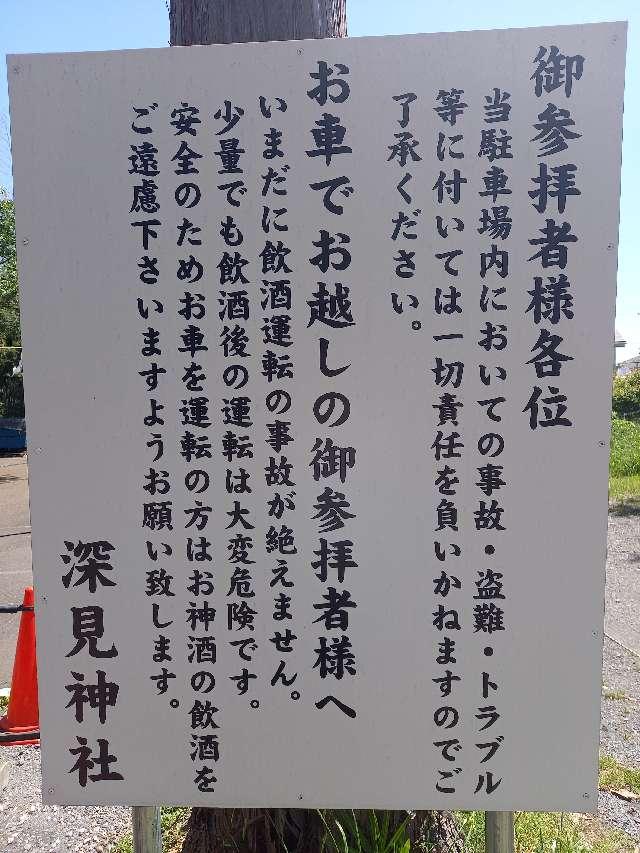 御参拝者様各位
当駐車場内においての事故・盗難・トラブル
等に付いては一切責任を負いかねますのでご
了承ください。
お車でお越しの御参拝者様へ
いまだに飲酒運転の事故が絶えません。
少量でも飲酒後の運転は大変危険です。
安全のためお車を運転の方はお神酒の飲酒を
ご遠慮下さいますようお願い致します。
深見神社